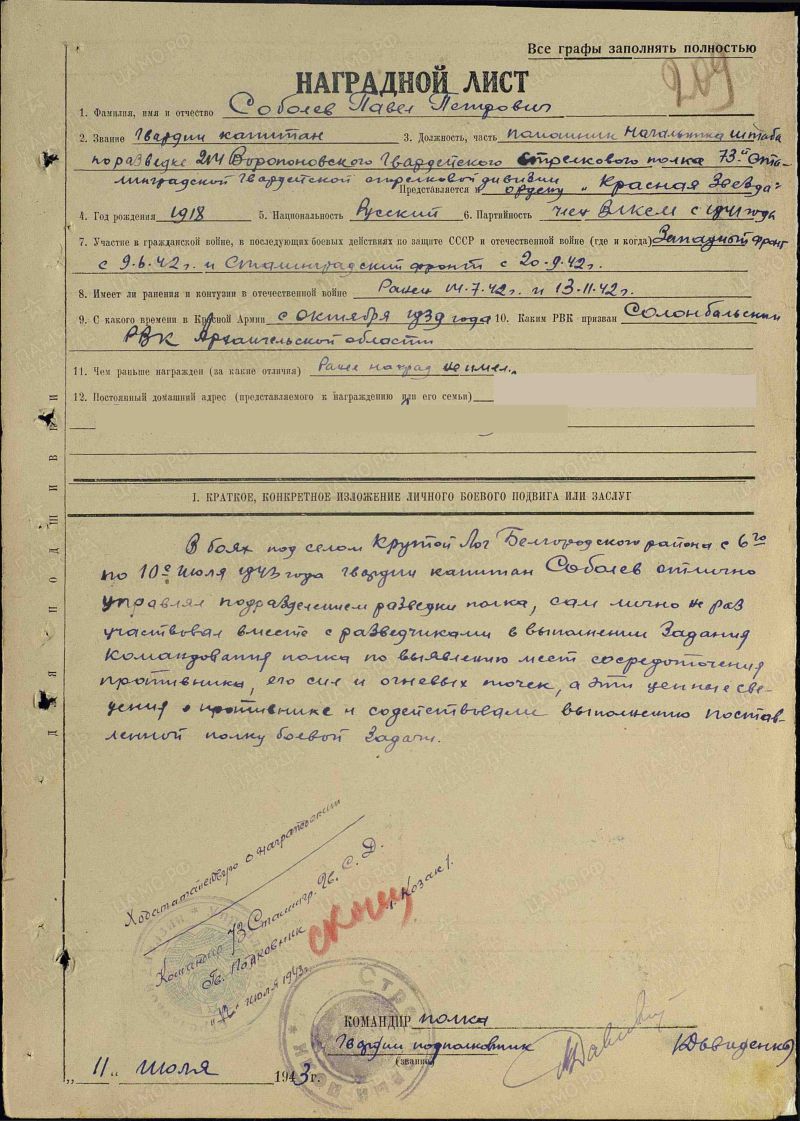 Все графы заполнять полностью
209
НАГРАДНОЙ ЛИСТ
1. Фамилия, имя и отчество Соболев Павел Петрович
2. Звание Гвардии капитан 3. Должность, часть помошник начальника штаба
по разведке 214 Воропоновского Гвардейского стрелкового полка 73й Ста-
линградской Гвардейской стрелковой дивизии
Представляется к ордену „Красная Звезда"
4. Год рождения 1918 5. Национальность Русский 6. Партийность член ВЛКСМ с 1941 года
7. Участие в гражданской войне, в последующих боевых действиях по защите СССР и отечественной войне (где и когда) Западный фронт
с 9.6.42г. и Сталинградский фронт с 20.9.42г.
8. Имеет ли ранения и контузии в отечественной войне Ранен 14.7.42г. и 13.11.42г.
9. С какого времени в Красной Армии с октября 1939 года 10. Каким РВК призван Соломбальским
РВК Архангельской области
11. Чем раньше награжден (за какие отличия) Ранее наград не имел.
12. Постоянный домашний адрес (представляемого к награждению или его семьи)
ДЛЯ ПОДШИВКИ
I. КРАТКОЕ, КОНКРЕТНОЕ ИЗЛОЖЕНИЕ ЛИЧНОГО БОЕВОГО ПОДВИГА ИЛИ ЗАСЛУГ
В боях под селом Крутой Лог Белгородского района с 6го
по 10е июля 1943 года гвардии капитан Соболев отлично
управлял подразделением разведки полка, сам лично не раз
участвовал вместе с разведчиками в выполнении задания
командования полка по выявлению мест сосредоточения
противника, его сил и огневых точек, а эти ценные све-
дения о противнике и содействовали выполнению постав-
ленной полку боевой задачи.
Ходатайствую о награждении
Командир 73 Сталингр. Гв. С. Д.
Гв. Полковник Козак
июля 1943г.
КОМАНДИР полка
Гвардии подполковник
(звание)
(Давиденко)
„11" июля 1943г.